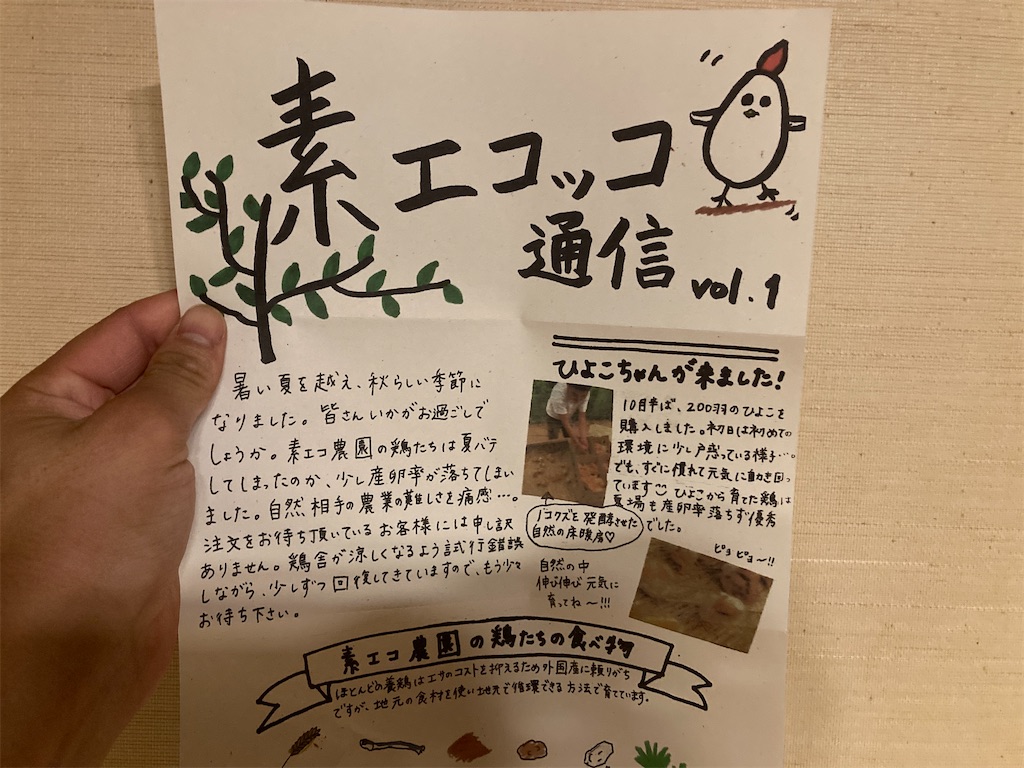 素エコッコ
通信 vol.1
暑い夏を越え、秋らしい季節に
なりました。皆さんいかがお過ごしで
しょうか。素エコ農園の鶏たちは夏バテ
してしまったのか、少し産卵率が落ちてしまい
ました。自然相手の農業の難しさを痛感…。
注文をお待ち頂いているお客様には申し訳
ありません。鶏舎が涼しくなるよう試行錯誤
しながら、少しずつ回復してきていますので、もう少々
お待ち下さい。
ひよこちゃんが来ました!
10月半ば、200羽のひよこを
購入しました。初日は初めての
環境に少し戸惑っている様子…。
でも、すぐに慣れて元気に動き回っ
ています ひよこから育てた鶏は
夏場も産卵率落ちず優秀
でした。
ノコクズを発酵させた
自然の床暖房♡
自然の中
伸び伸び元気に
育ってね〜!!!
ピヨピヨ〜!!
素エコ農園の鶏たちの食べ物
ほとんどの養鶏はエサのコストを抑えるため外国産に頼りがち
ですが、地元の食材を使い地元で循環できる方法で育てています。